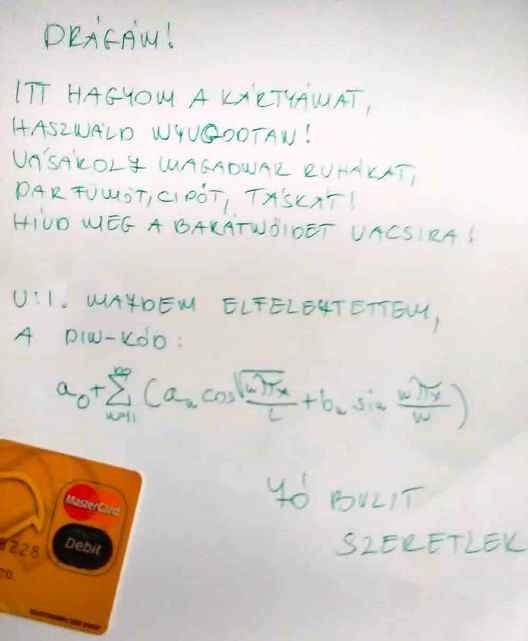 DRÁGÁM!
ITT HAGYOM A KÁRTYÁMAT,
HASZNÁLD NYUGODTAN!
VÁSÁROLJ MAGADNAK RUHÁKAT,
PARFÜMÖT, CIPŐT, TÁSKÁT!
HÍVD MEG A BARÁTNŐIDET VACSIRA!
U.I. MAJDEM ELFELEJTETTEM,
A PIN-KÓD:
a₀+∑(aₙ cos √nπx/L + bₙ sin nπx/n)
JÓ BULIT
SZERETLEK
MasterCard
8228
Debit